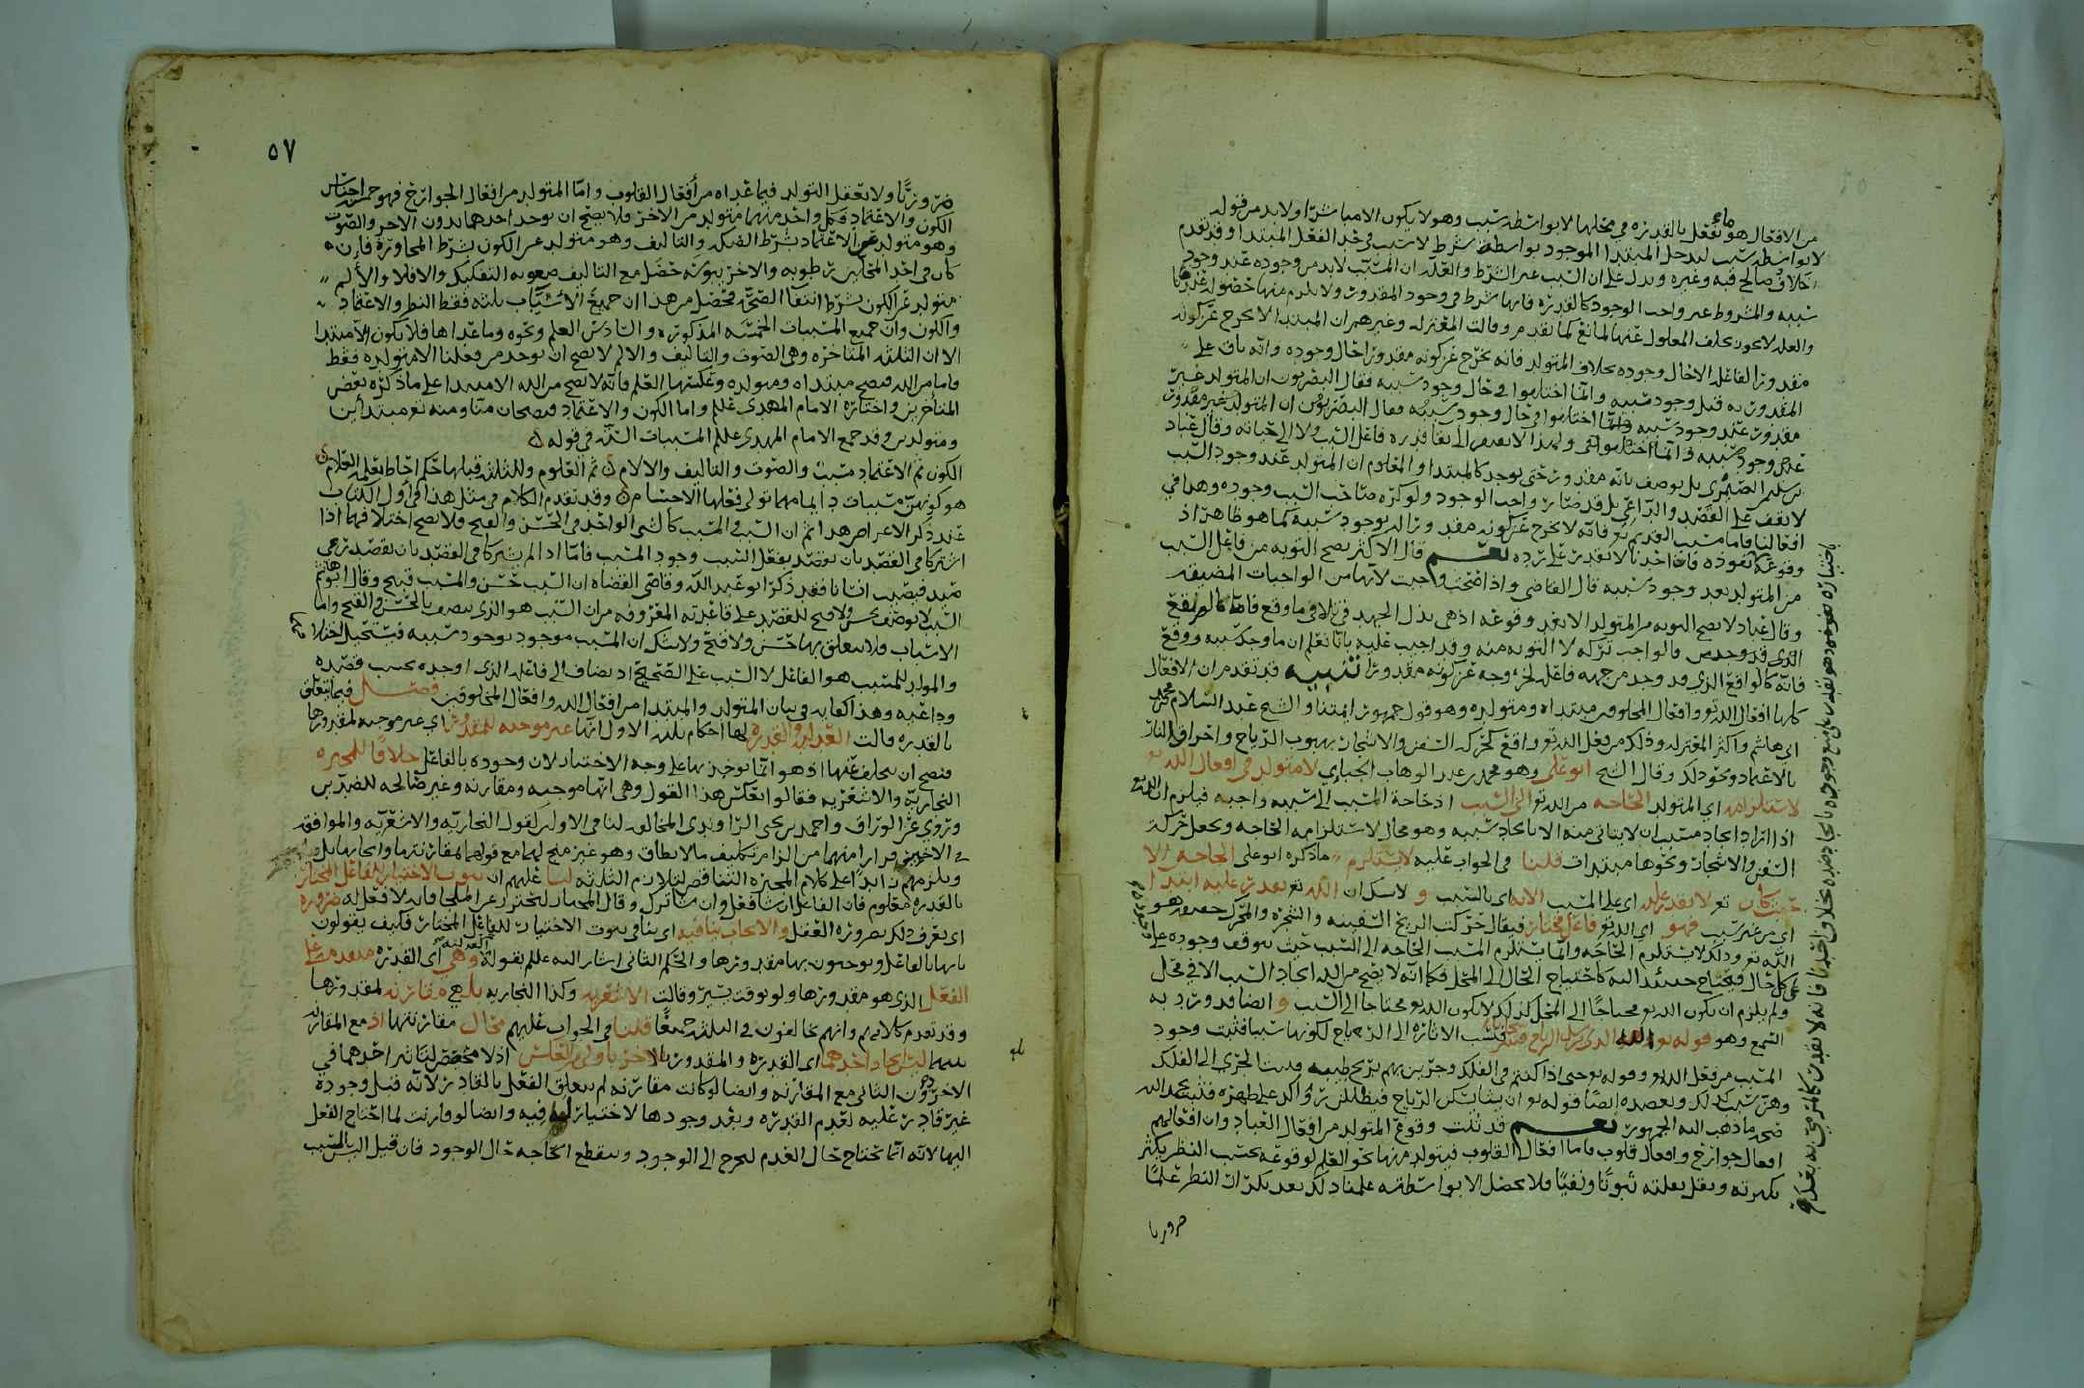 من الافعال هو ما نفعل بالقدرة في محلها لا بواسطة سبب وهو لا يكون الا مباشرا ولا بد من قوله
لا بواسطة سبب ليدخل المبتدا الموجود بواسطة شرط لا سبب في حد الفعل المبتدا وقد تقدم
خلاف صالح قبه وغيره ويدل على ان السبب غير الشرط والعلة ان المسبب لا بد من وجوده عند وجود
سببه والمشروط غير واجب الوجود كالقدرة فانها شرط في وجود المقدور ولا يلزم منها حصوله عندها
والعلة لا يجوز تخلف المعلول عنها لمانع كما تقدم وقالت المعتزلة وغيرهم ان المبتدا لا يخرج عن كونه
مقدورا لفاعله الا حال وجوده بخلاف المتولد فانه يخرج عن كونه مقدورا حال وجوده وانه باق على
المقدورية قبل وجود سببه وانما اختلفوا في حال وجود سببه فقال البصريون ان المتولد غير
مقدور عند وجود سببه
لا يقف على القصد والداعي بل قد صار واجب الوجود ولو كره صاحب السبب وجوده وهذا في
افعالنا فاما مسبب القديم تع فانه لا يخرج عن كونه مقدورا له بوجود سببه كما هو ظاهر اذ
وقوعه نفوذه فان احدنا لا يقدر على رده نعم قال الاكثر يصح التوبة من فاعل السبب
من المتولد بعد وجود سببه قال القاضي واذا صحت وجبت لانها من الواجبات المضيقة
وقال عباد لا تصح التوبة من المتولد الا بعد وقوعه اذ هي بذل الجهد في تلافي ما وقع فاما ما لم يقع
فانه كالواقع الذي قد وجد من جهة فاعله لخروجه عن كونه مقدورا تنبيه قد تقدم ان الافعال
كلها افعال الله تع وافعال المخلوقين مبتداه ومتولده وهو قول جمهور ائمتنا والشيخ عبد السلام محمد بن
ابي هاشم واكثر المعتزلة وذلك من فعل الله تع واقع كحركة السفن والاشجار بهبوب الرياح واحراق النار
بالاعتماد ونحو ذلك وقال الشيخ ابو علي وهو محمد بن عبد الوهاب الجبائي لا متولد في افعال الله تع
لاستلزامه اي المتولد الحاجة من الله تع الى السبب اذ حاجة المسبب الى سببه واجبة فيلزم ان الله تع
اذا اراد ايجاد مسبب ان لا يتاتى منه الا بايجاد سببه وهو محال لاستلزامه الحاجة ونجعل حركة
السفن والاشجار ونحوها مبتدات قلنا في الجواب عليه لا يستلزم ما ذكره ابو علي الحاجة الا
حيث كان تع لا يقدر عليه اي على المسبب الا به اي بالسبب و لا شك ان الله تع يقدر عليه ابتدا
اي من غير سبب فهو اي الله تع فاعل مختار فيقال حركت الريح السفينة والشجرة والمحرك حقيقة هو
الله تع وذلك لا يستلزم الحاجة وانما يستلزم المسبب الحاجة الى السبب حيث يتوقف وجوده عليه
على كل حال فيحتاج حينئذ اليه كاحتياج الحال الى المحل فكما انه لا يصح من الله ايجاد السبب الا في محل
ولم يلزم ان يكون الله تع محتاجا الى المحل كذلك لا يكون الله تع محتاجا الى السبب و ايضا قد ورد به
السمع وهو قوله تع الله الذي يرسل الرياح فتثير سحابا فنسب الاثارة الى الرياح لكونها سببا فثبت وجود
المسبب من فعل الله تع وقوله تع حتى اذا كنتم في الفلك وجرين بهم بريح طيبة فنسب الجري الى الفلك
وهي سبب كذلك ويعضده ايضا قوله تع ان يشا يسكن الرياح فيظللن رواكد على ظهره فثبت بحمد الله
صحة ما ذهب اليه الجمهور نعم قد ثبت وقوع المتولد من افعال العباد وان افعالهم
افعال جوارح وافعال قلوب فاما افعال القلوب فيتولد منها نحو العلم لوقوعه بحسب النظر يكثر
بكثرته ويقل بقلته ثبوتا ونفيا فلا يحصل الا بواسطته علمنا ذلك بعد تكرار النظر علما
ضروريا
٥٧
ضروريا ولا نعقل التولد فيما عداه من افعال القلوب واما المتولد من افعال الجوارح فهو خمسة اجناس
الكون والاعتماد فكل واحد منهما متولد من الاخر فلا يصح ان يوجد احدهما بدون الاخر والصوت
وهو متولد عن الاعتماد بشرط الصكة والتاليف وهو متولد عن الكون بشرط المجاورة فان
كان في احد المحلين رطوبة والاخر يبوسة حصل مع التاليف صعوبة التفكيك والا فلا والالم
متولد عن الكون بشرط انتفا الصحة فحصل من هذا ان جميع الاسباب ثلثة فقط النظر والاعتماد
والكون وان جميع المسببات الخمسة المذكورة والسادس العلم ونحوه وما عداها فلا يكون الا مبتدا
الا ان الثلثة المتاخرة وهي الصوت والتاليف والالم لا يصح ان يوجد من فعلنا الا متولدة فقط
فاما من الله فيصح مبتداه ومتولده وعكسها العلم فانه لا يصح من الله الا مبتدا على ما ذكره بعض
المتاخرين واختاره الامام المهدي علم واما الكون والاعتماد فيصحان منا ومنه تع مبتداين
ومتولدين وقد جمع الامام المهدي علم المسببات الستة في قوله
الكون ثم الاعتماد مسبب والصوت والتاليف والالام ثم العلوم وللثلث قبلها حكم احاط بعلمه العلام
هو كونهن مسببات دايما مهما تولى فعلها الاجسام وقد تقدم الكلام في مثل هذا في اول الكتاب
عند ذكر الاعراض هذا ثم ان السبب والمسبب كالشي الواحد في الحسن والقبح ولا يصح اختلافهما اذا
اشتركا في القصد بان يقصد بفعل السبب وجود المسبب فاما اذا لم يشتركا في القصد بان يقصد رمي
صيد فيصيب انسانا فقد ذكر ابو عبد الله وقاضي القضاة ان السبب حسن والمسبب قبيح وقال ابو هاشم
السبب لا يوصف بحسن ولا قبح للقصد على قاعدته المعروفة من ان السبب هو الذي يتصف بالحسن والقبح واما
الاسباب فلا يتعلق بها حسن ولا قبح ولا شك ان المسبب موجود بوجود سببه فيستحيل اختلافهما
والمولد للمسبب هو الفاعل لا السبب على الصحيح اذ يضاف الى فاعله الذي اوجده بحسب قصده
وداعيه وهذا كفاية في بيان المتولد والمبتدا من افعال الله وافعال المخلوقين فصل فيما يتعلق
بالقدرة قالت العدلية والقدرة لها احكام ثلثة الاول انها غير موجبة للمقدور اي غير موجبة لمقدورها
فيصح ان يتخلف عنها اذ هو انما يوجد بها على وجه الاختيار لان وجوده بالفاعل خلافا للمجبرة
النجارية والاشعرية فقالوا بعكس هذا القول وهي انها موجبة ومقارنة وغير صالحة للضدين
وروي عن الوراق واحمد بن يحيى الراوندي المخالفة لنا في الاول كقول النجارية والاشعرية والموافقة
في الاخيرين فرارا منهما من الزامهم تكليف ما لا يطاق وهو غير منج لهما مع قولهما بمقارنتها وايجابها بل
ويلزمهم زايدا على كلام المجبرة التناقض لتلازم الثلثة لنا عليهم ان ثبوت الاختيار للفاعل المختار
بالقدرة معلوم فان الفاعل ان شا فعل وان شا ترك وقال المختار ليحترز عن الملجا فانه لا فعل له ضرورة
اي نعرف ذلك بضرورة العقل والايجاب ينافيه اي ينافي ثبوت الاختيار للفاعل المختار فكيف يقولون
بانها بالفاعل ويوجبون بها مقدورها والحكم الثاني اشار اليه علم بقوله وهي اي القدرة متقدمة على
الفعل الذي هو مقدورها ولو بوقت يسير وقالت الاشعرية وكذا النجارية بل هي مقارنة لمقدورها
وقد تقدم كلامهم وانهم مخالفون في الثلث جميعا قلنا في الجواب عليهم محال مقارنتها اذ مع المقارنة
بينهما ليس ايجاد احدهما اي القدرة والمقدور بالاخر باولى من العكس اذ لا مخصص لتاثير احدهما في
الاخر دون الثاني مع المقارنة وايضا لو كانت مقارنة لم يتعلق الفعل بالقادر لانه قبل وجوده
غير قادر عليه لعدم القدرة وبعد وجودها لا اختيار له فيه وايضا لو قارنت لما احتاج الفعل
اليها لانه انما يحتاج حال العدم ليخرج الى الوجود وينقطع الحاجة حال الوجود فان قيل اليس السبب